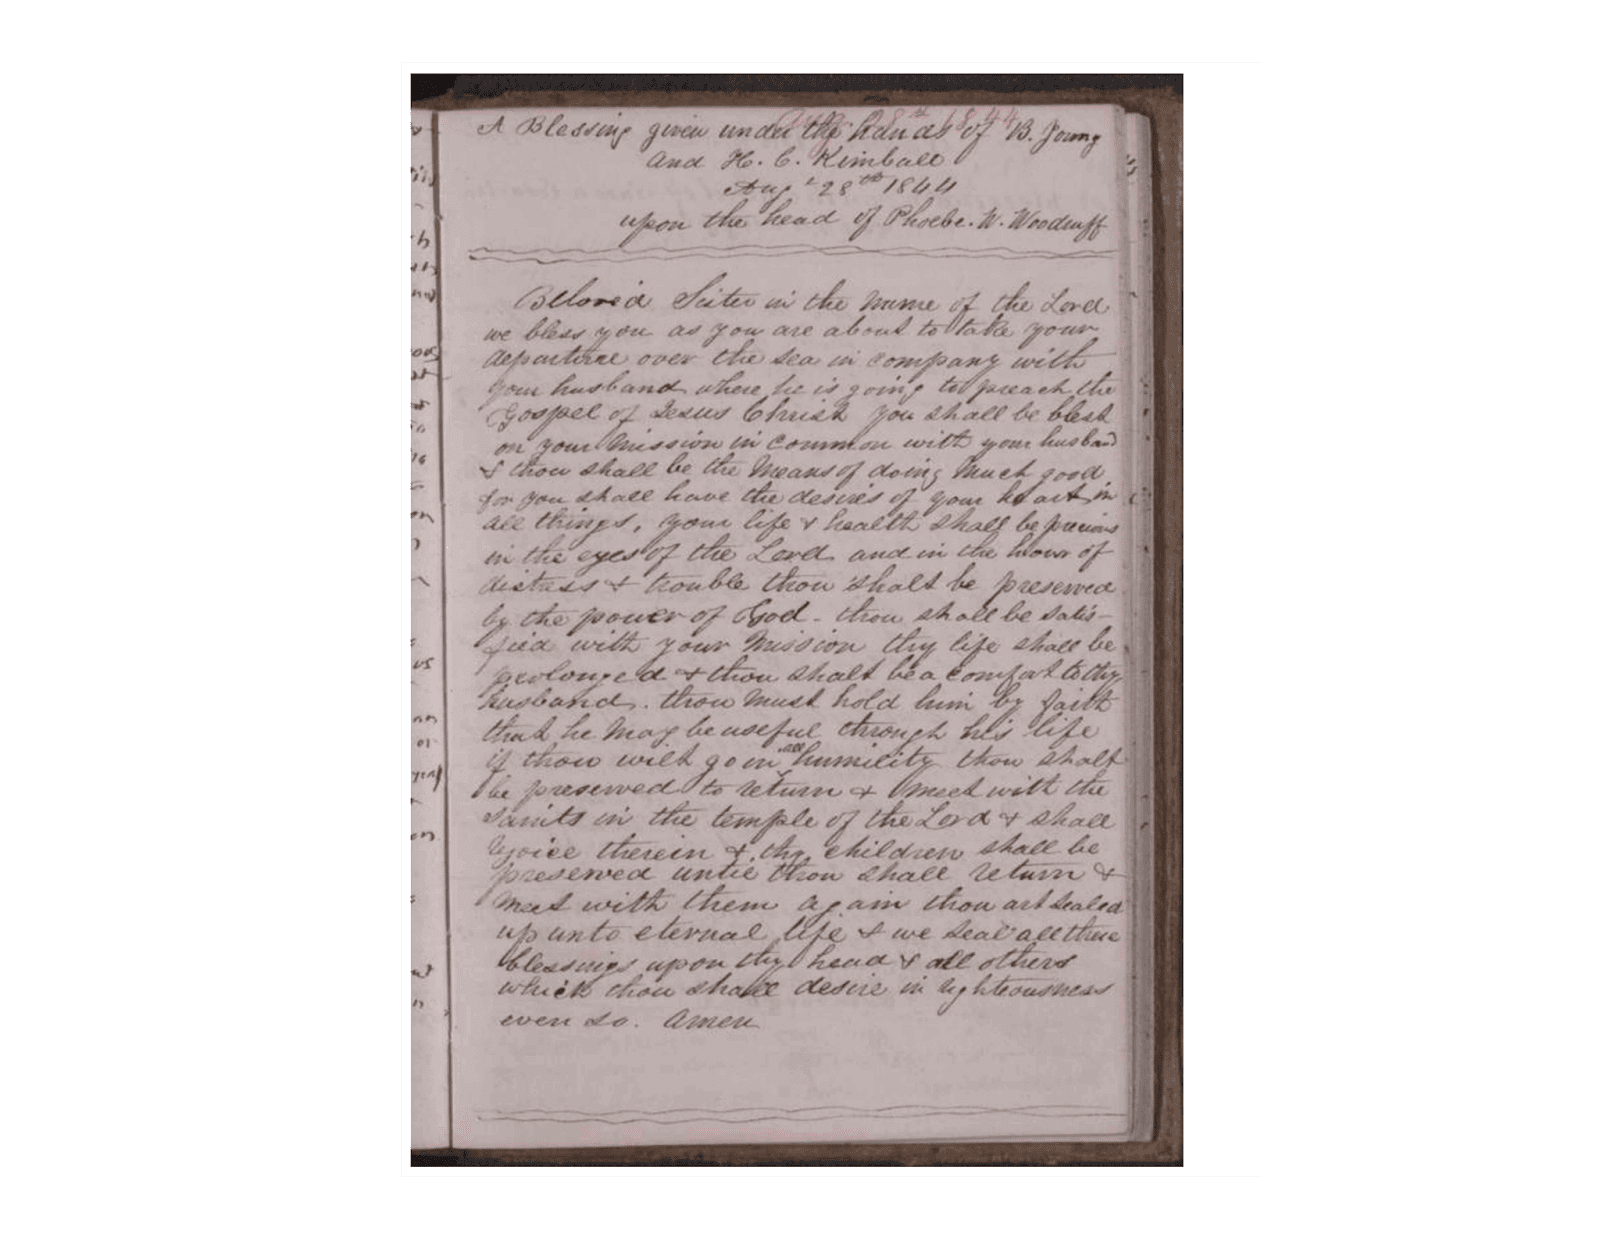 Aug. 28th 1844
A Blessing given under the hands of B. Young
and H. C. Kimball
Augt 28th 1844
upon the head of Phoebe. W. Woodruff
Beloved Sister in the name of the Lord
we bless you as you are about to take your
departure over the sea in company with
your husband where he is going to preach the
Gospel of Jesus Christ you shall be blest
on your mission in common with your husband
& thou shall be the means of doing much good
for you shall have the desires of your heart in
all things, your life & health shall be precious
in the eyes of the Lord and in the hour of
distress & trouble thou shalt be preserved
by the power of God - thou shall be satis-
fied with your mission thy life shall be
prolonged & thou shalt be a comfort to thy
husband. thou must hold him by faith
that he may be useful through his life
if thou wilt go in all humility thou shalt
be preserved to return & meet with the
saints in the temple of the Lord & shall
rejoice therein & thy children shall be
preserved untie thou shall return &
meet with them again thou art sealed
up unto eternal life & we seal all these
blessings upon thy head & all others
which thou shall desire in righteousness
even so. Amen